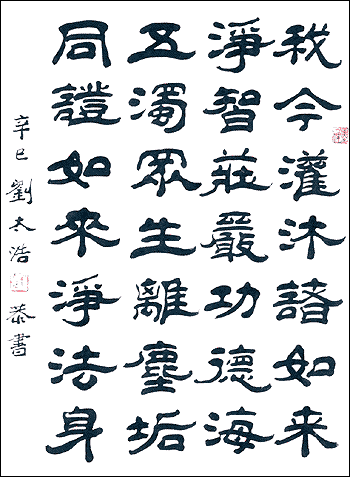 我今灌沐諸如来
淨智莊嚴功德海
五濁眾生離塵垢
同證如來淨法身
辛巳劉太浩恭書